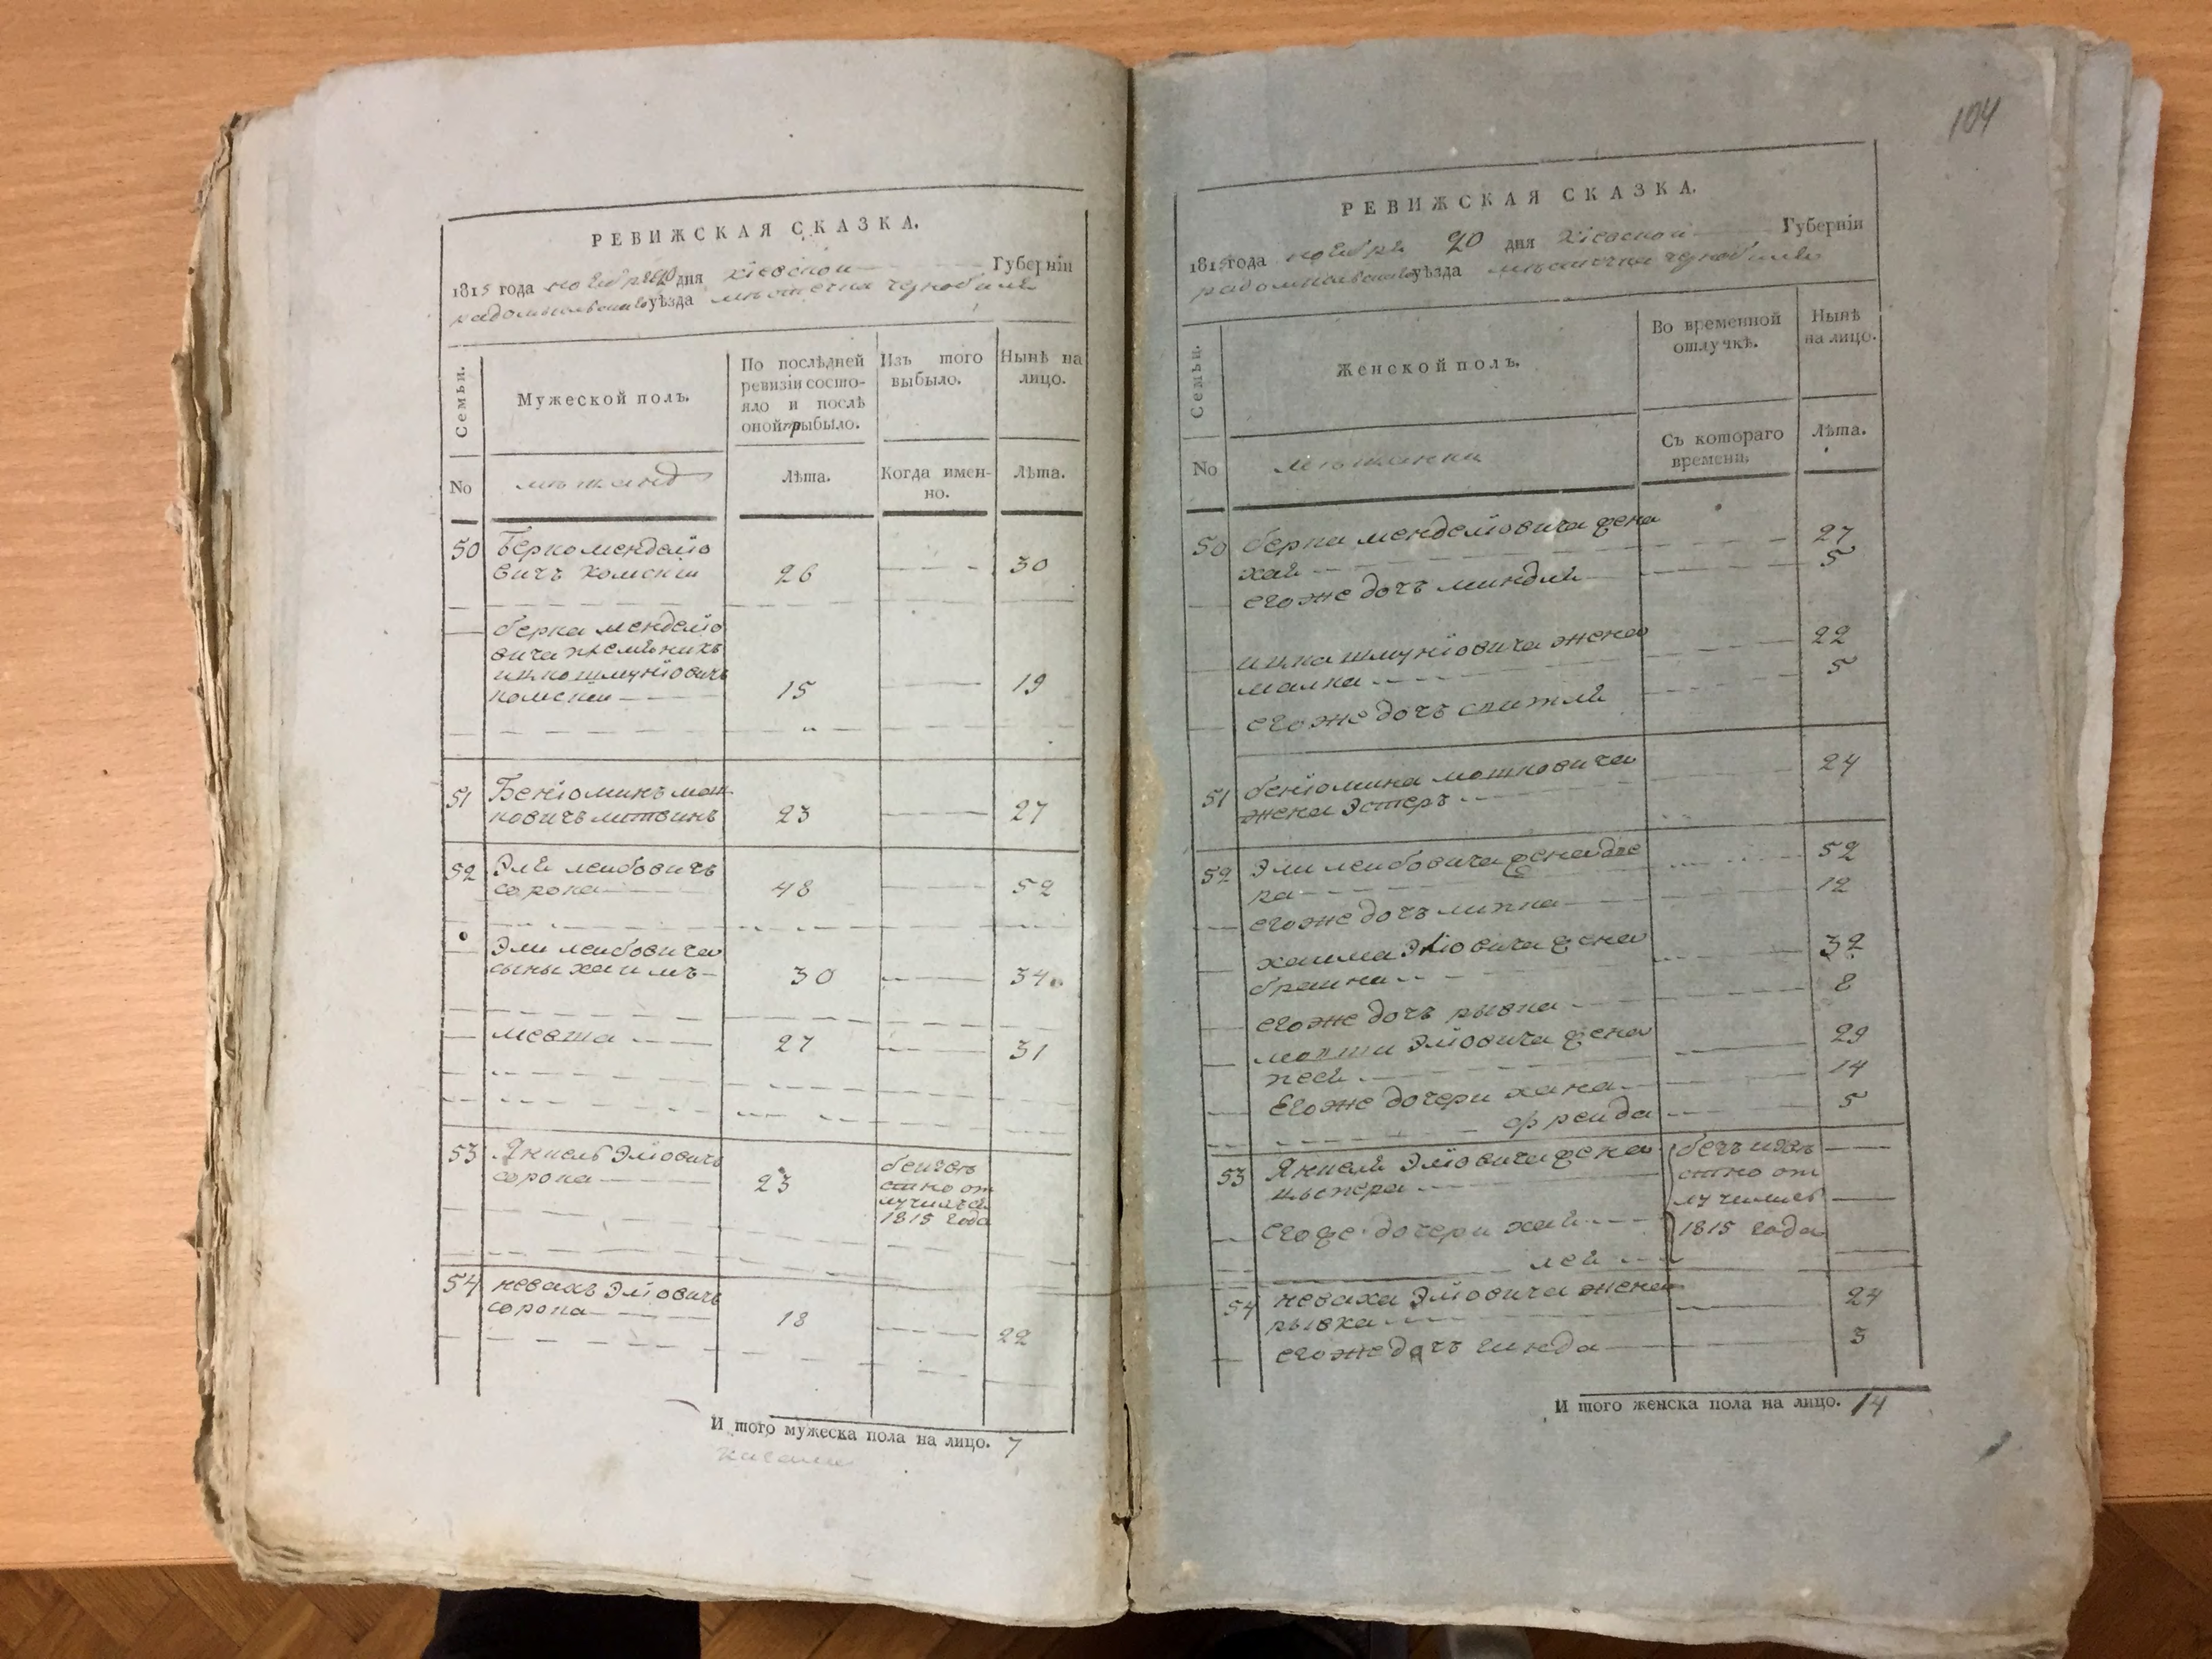 РЕВИЖСКАЯ СКАЗКА.
1815 года ноября 20 дня Кіевской Губерніи
радомысльскаго уѣзда мѣстечка чернобыля
Семьи.
Мужеской полъ.
По послѣдней
ревизіи состо-
яло и послѣ
оной прибыло.
Изъ того
выбыло.
Нынѣ на
лицо.
No
мѣщанъ
Лѣта.
Когда имен-
но.
Лѣта.
50 Берко менделіо
вичъ комскии 26 30
берка менделіо
вича племѣникъ
ицко шмуніовичъ
комскии 15 19
51 Беніоминъ мош
ковичъ литвинъ 23 27
52 Эля леибовичъ
сорока 48 52
Эли леибовича
сыны хаимъ 30 34
мовша 27 31
53 Янкель Эліовичъ
сорока 23
безъизвѣ
стно от
лучился
1815 года
54 невахъ Эліовичъ
сорока 18 22
И того мужеска пола на лицо. 7
104
РЕВИЖСКАЯ СКАЗКА.
1815 года ноября 20 дня Кіевской Губерніи
радомысльскаго уѣзда мѣстечка чернобыля
Семьи.
Женской полъ.
Во временной
отлучкѣ.
Нынѣ
на лицо.
No
мѣщанки
Съ котораго
времени.
Лѣта.
50 берка менделіовича жена
хая 27
егоже дочъ миндля 5
ицка шмуніовича жена
малка 22
егоже дочъ спитля 5
51 беніомина мошковича
жена Эстеръ 24
52 Эли леибовича жена две
ра 52
егоже дочъ липка 12
хаима Эліовича жена
браина 32
егоже дочъ рывка 8
мовши Эліовича жена
песя 29
Егоже дочери хана 14
фреида 5
53 Янкеля Эліовича жена
ципера
егоже дочери хая
лея
безъизвѣ
стно от
лучились
1815 года
54 неваха Эліовича жена
рывка 24
егоже дочъ гинда 3
И того женска пола на лицо. 14